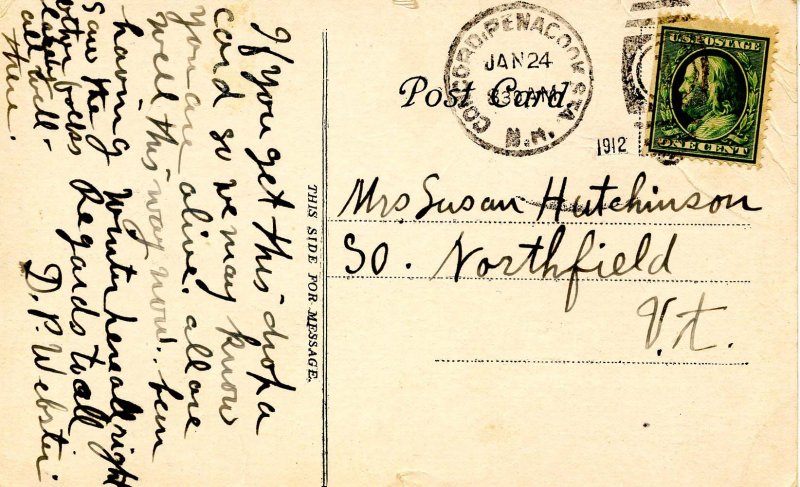 Post Card
CONCORD, PENACOOK STA.
JAN 24
8 30 AM
N.H.
1912
U.S. POSTAGE
ONE CENT
THIS SIDE FOR MESSAGE.
If you get this drop a
card so we may know
you are alive. all are
well this way now.. been
having Winter here all right
Saw the
other folks
lately
all well -
there.
Regards to all
D. P. Webster.
Mrs Susan Hutchinson
So. Northfield
Vt.